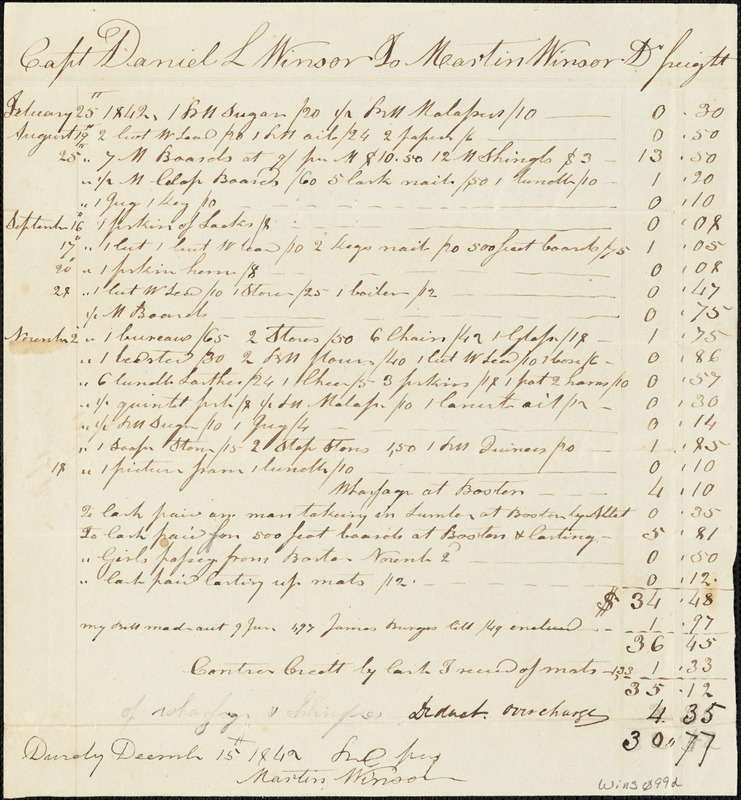 Capt Daniel L Winsor To Martin Winsor Dr freight
February 25th 1842, 1 bbll Sugar /20 1/2 bbll Malases /10 — 0 .30
August 17th 2 cwt W Lead /20 1 bbll oil /24 2 papers /6 — 0 .50
25th " 7 M Boards at 9/ per M $10.50 12 M Shingls $3 — 13 .50
" 1/2 M Clap Boards /60 5 Cask nails /50 1 bundle /10 — 1 .20
" 1 Jug 1 Keg /10 — 0 .10
September 16th 1 firkin of Lacks /8 — 0 .08
17th " 1 cwt 1 cwt W Lead /10 2 Kegs nails /20 500 feet boards /75 1 .05
20th " 1 firkin /8 — 0 .08
28 " 1 cwt W Lead /10 1 Stove /25 1 boiler /12 0 .47
1/2 M Boards — 0 .75
November 2 " 1 bureau /65 2 Stoves /50 6 Chairs /42 1 Glass /18 — 1 .75
" 1 bedsted /30 2 bbll flour /40 1 cwt W Lead /10 /6 — 0 .86
" 6 bundls Lathes /24 1 /5 3 firkins /18 1 pot 2 hams /10 0 .57
" 1/2 quintel fish /8 1/2 bbll Malases /10 1 oil /12 — 0 .30
" 1/2 bbll Sugar /10 1 Jug /4 0 .14
" 1 Soap Stone /15 2 Step Stones 1,50 1 bbll Quinces /20 — 1 .85
18 " 1 picture frame 1 bundle /10 0 .10
Wharfage at Boston — 4 .10
To Cash paid one man takeing in Lumber at Boston by 0 .35
To Cash paid for 500 feet boards at Boston & Carting — 5 .81
" Girls passage from Boston Novemb 2d 0 .50
" Cash paid Carting up mats /12 . — 0 .12.
$ 34 .48
my bill made out 9 June ,97 James Burges bill /49 enclosed — 1 .97
36 45
Contra Credit by Cash I received of mats — 1,33 1 .33
35 .12
of wharfage & Shingles Deduct. overcharge 4. 35
30 " 77
Duxbury Decemb 15th 1842
Martin Winsor
Wins 0992